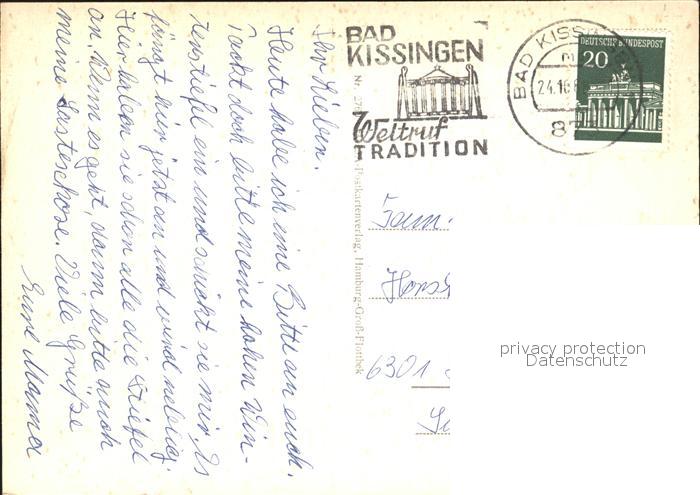 BAD
KISSINGEN
Weltruf
TRADITION
BAD KISSINGEN
24.10.
87
DEUTSCHE BUNDESPOST
20
Ihr Lieben.
Heute habe ich eine Bitte an euch.
Packt doch bitte meine hohen Win-
terstiefel ein und schickt sie mir. Es
fängt hier jetzt an und wird neblig.
Hier haben sie schon alle die Stiefel
an. Wenn es geht, dann bitte auch
meine Hose. Viele Grüße
Eure Mama
Nr.
Postkartenverlag, Hamburg-Groß-Flottbek
Fam.
Horst
6301
privacy protection
Datenschutz